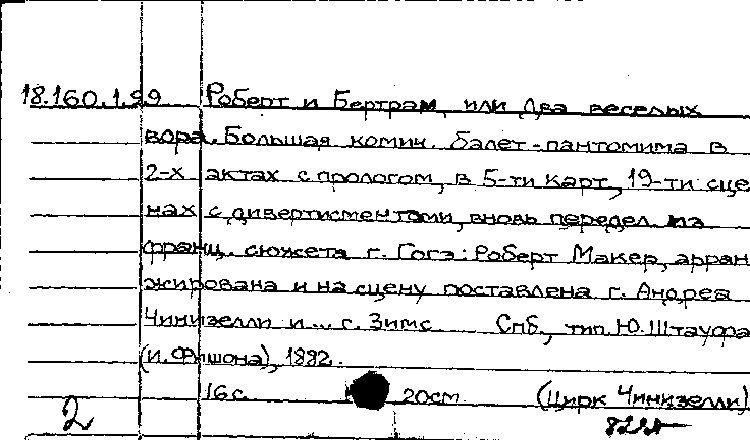 18.160.1.99 Роберт и Бертрам, или два веселых
вора. Большая комич. балет-пантомима в
2-х актах с прологом, в 5-ти карт, 19-ти сце
нах с дивертисментами, вновь передел. из
франц. сюжета г. Гогэ: Роберт Макер, арран
жирована и на сцену поставлена г. Андреа
Чинизелли и... г. Зимс Спб., тип. Ю. Штауфа
(И. Фишона), 1892.
16 с. 20см. (Цирк Чинизелли)
2